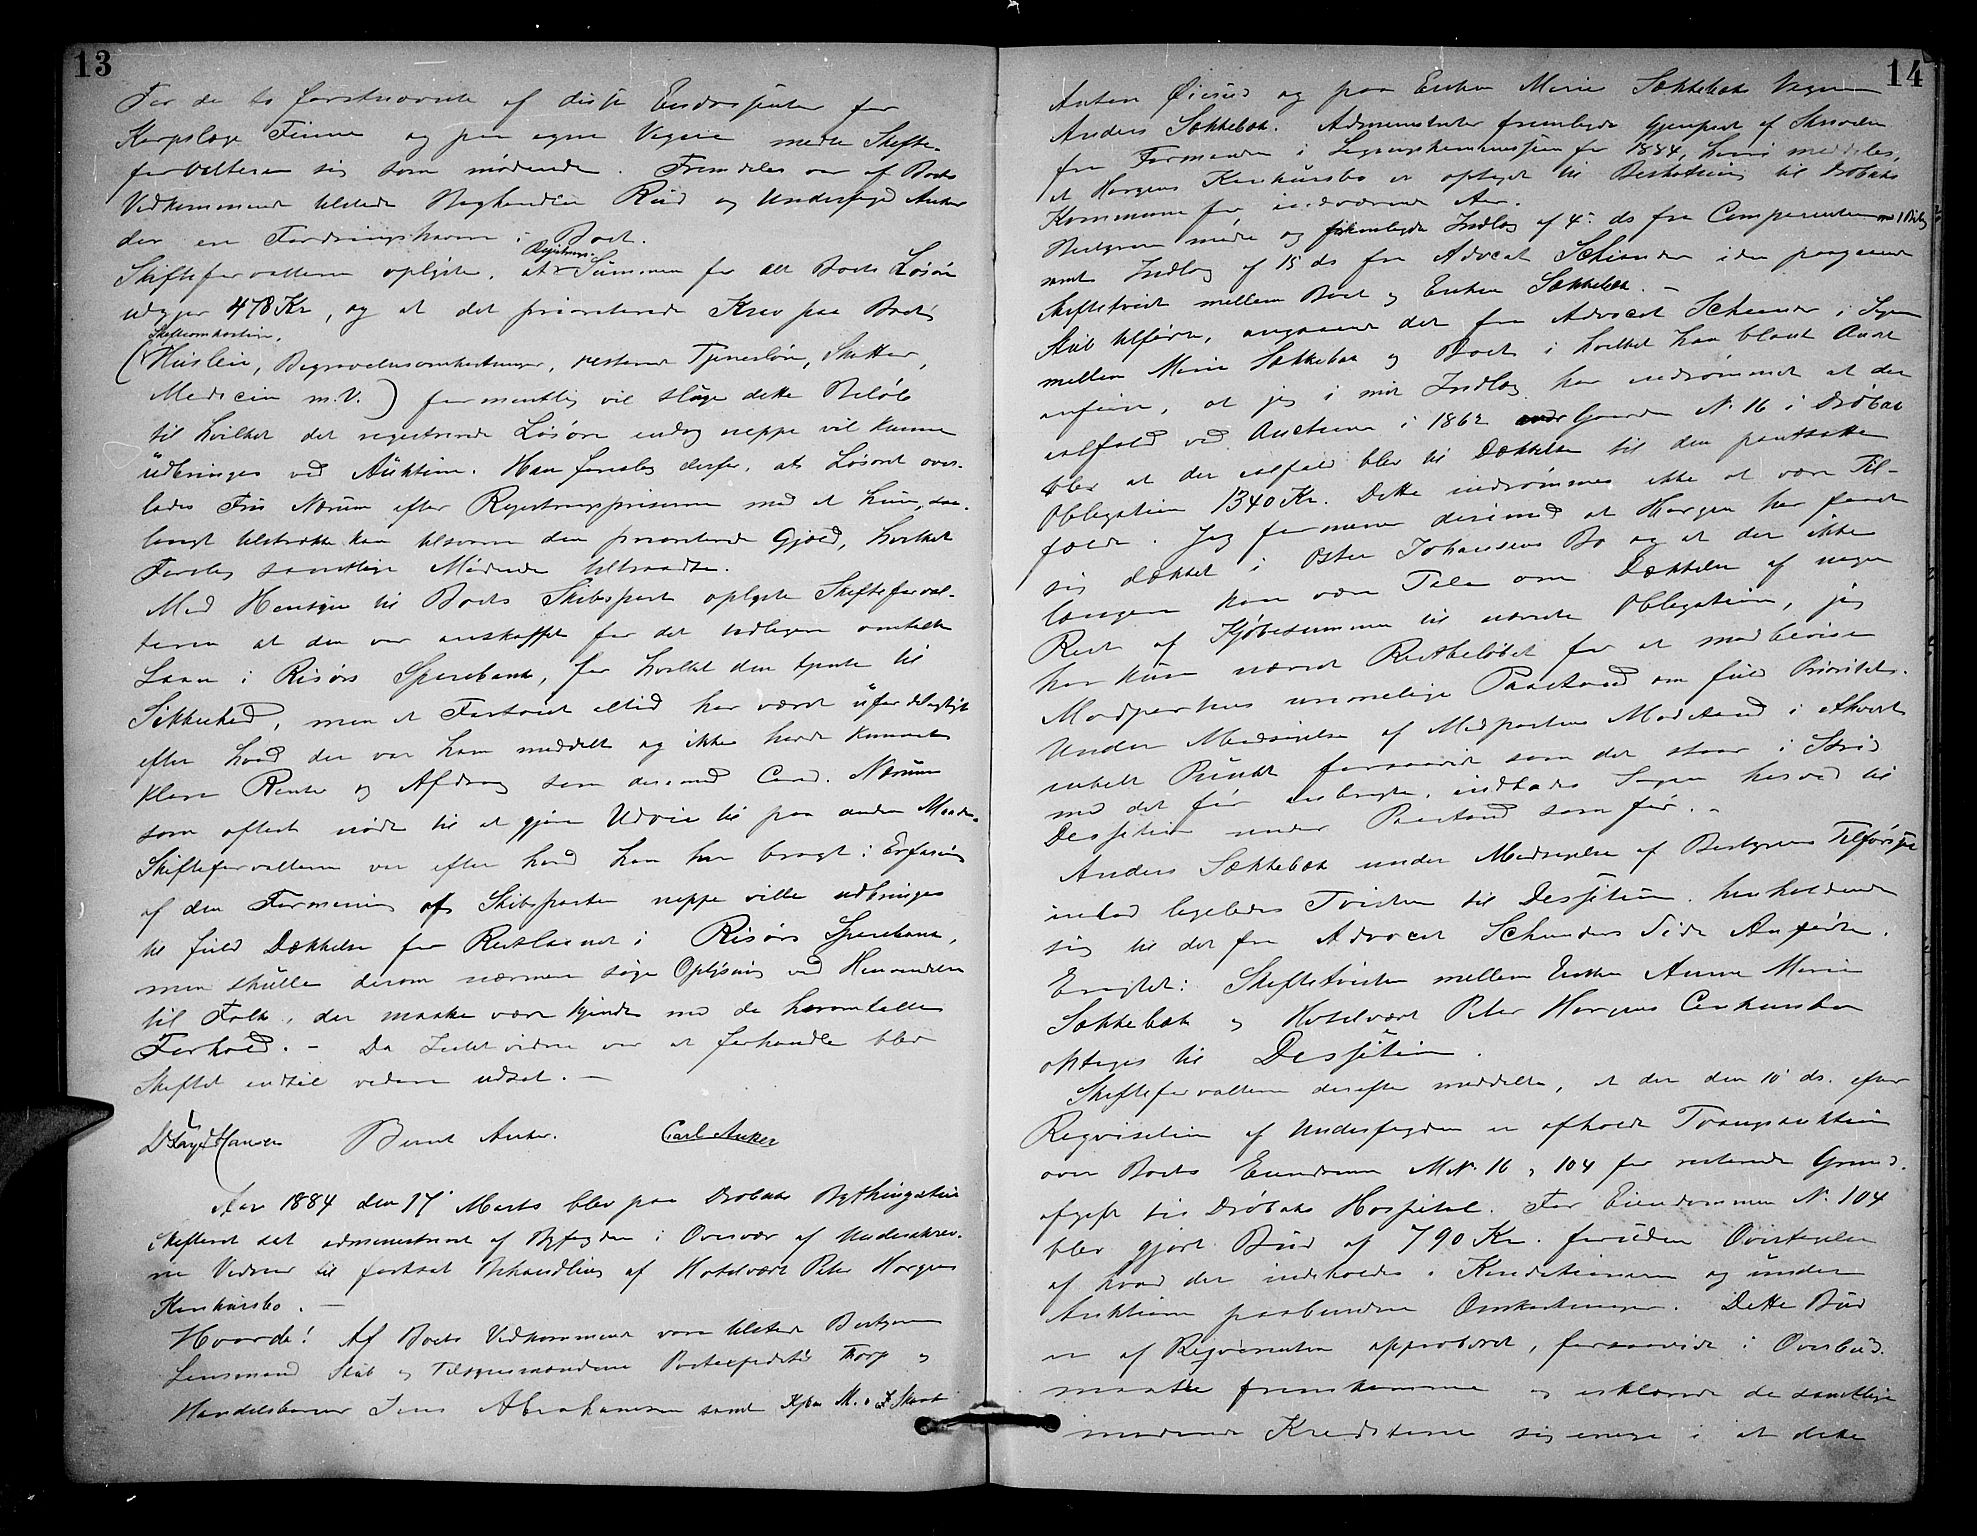 13
For de to førstnævnte af disse Eiendosputer for
Korpslæge Finne og paa egne Vegne mødte Skifte-
forvalteren sig som mødende. Fremdeles var af Boets
Vedkommende tilstede Boghandler Rud og Underfoged Anker
der er Fordringshavere i Boet.
Skifteforvalteren oplyste, at Registrerings-Summen for alt Boets Løsøre
udgjør 478 Kr, og at det prioriterede Krav paa Boet
Skifteomkostn.
(Husleie, Begravelsesomkostninger, resterende Tjenerløn, Skatter,
Medicin m.V.) formentlig vil sluge dette Beløb
til hvilket det registrerede Løsøre endog neppe vil kunne
udbringes ved Auktion. Han foreslog derfor, at Løsøret over-
lades Fru Nærum efter Registreringspriserne mod at hun, saa-
langt tilstrække kan tilsvarer den prioriterede Gjæld, hvilket
Forslag samtlige Mødende tiltraadte.
Med Hensyn til Boets Skibspart oplyste Skifteforval-
teren at den var anskaffet for det tidligere omtalte
Laan i Risørs Sparebank, for hvilket den tjente til
Sikkerhed, men at Fartøiet altid har været ufordelagtigt
efter hvad der var ham meddelt og ikke havde kunnet
klare Renter og Afdrag som derimod Cand. Nærum
som oftest nødt til at gjøre Udvei til paa anden Maade.
Skifteforvalteren var efter hvad han har bragt i Erfaring
af den Formening at Skibsparten neppe ville udbringes
til fuld Dækkelse for Restlaanet i Risørs Sparebank,
men skulle derom nærmere søge Oplysning ved Henvendelse
til Folk, der maatte være kjendt med de heromtalte
Forhold. – Da Intet videre var at forhandle blev
Skiftet indtil videre udsat. –
Bernt Anker. Carl Anker
Aar 1884 den 17' Marts blev paa Drøbaks Bythingstue
Skifteret sat administreret af Byfogden i Overvær af Underskrev-
ne Vidner til fortsat Behandling af Hotelvært Peter Horgens
Konkursbo. –
Hvorda! Af Boets Vedkommende vare tilstede Bestyreren
Lensmand Stub og Tilsynsmændene Postexpeditør Thorp og
Handelsborger Jens Abrahamsen samt Kjbm M.
14
Anton Øiesud og paa Enken Marie Sækkebæk Vegne
Anders Sækkebæk. Administrator fremlagde Gjenpart af Skrivelse
fra Formanden i Ligningskommissionen for 1884, hvori meddeles,
at Horgens Konkursbo er optaget til Beskatning til Drøbaks
Kommune for indeværende Aar.
Bestyreren mødte og fremlagde Indlæg af 4' ds fra Comparenten m 1 Bilag
samt Indlæg af 15 ds fra Advocat Schiander i den paagaaende
Skiftetvist mellem Boet og Enken Sækkebæk. –
Stub tilførte, angaaende det fra Advocat Schiander i Sagen
mellem Marie Sækkebæk og Boet i hvilket han blandt Andet
anfører, at jeg i mit Indlæg har indrømmet at der
ialfald ved Auctionen i 1862 over Gaarden N. 16 i Drøbak
blev at der ialfald blev til Dækkelse til den pantsatte
Obligation 1340 Kr. Dette indrømmes ikke at være Til-
fælde. Jeg formener derimod at Horgen har faaet
sig dækket i Oster Johansens Bo og at der ikke
længere kan være Tale om Dækkelse af nogen
Rest af Kjøbesummen til nævnte Obligation, jeg
har kun nævnt Restbeløbet for at modbevise
Modpartens urimelige Paastand om fuld Prioritet.
Under Modsigelse af Modpartens Modstand i ethvert
enkelt Punkt forsaavidt som det staar i Strid
med det før anbragte, indlades Sagen herved til
Decision under Paastand som før. –
Anders Sækkebæk under Modsigelse af Bestyrerens Tilførsel
indlod ligeledes Tvisten til Decision, henholdende
sig til det fra Advocat Schianders Side Anførte.
Eragtet: Skiftetvisten mellem Enken Anne Marie
Sækkebæk og Hotelvært Peter Horgens Conkursbo
optages til Decision.
Skifteforvalteren derefter meddelte, at der den 10' ds. efter
Reqvisition af Underfogden er afholdt Tvangsauktion
over Boets Eiendomme MN. 16 og 104 for resterende Grund-
afgift til Drøbaks Hospital. For Eiendommen N. 104
blev gjort Bud af 790 Kr. foruden Overtagelse
af hvad der indeholdes i Konditionerne og under
Auktionen paabundne Omkostninger. Dette Bud
er af Reqvirenten approberet, forsaavidt i Overbud
maatte fremkomme og erklærede de samtlige
mødende Kreditorer sig enige i at dette